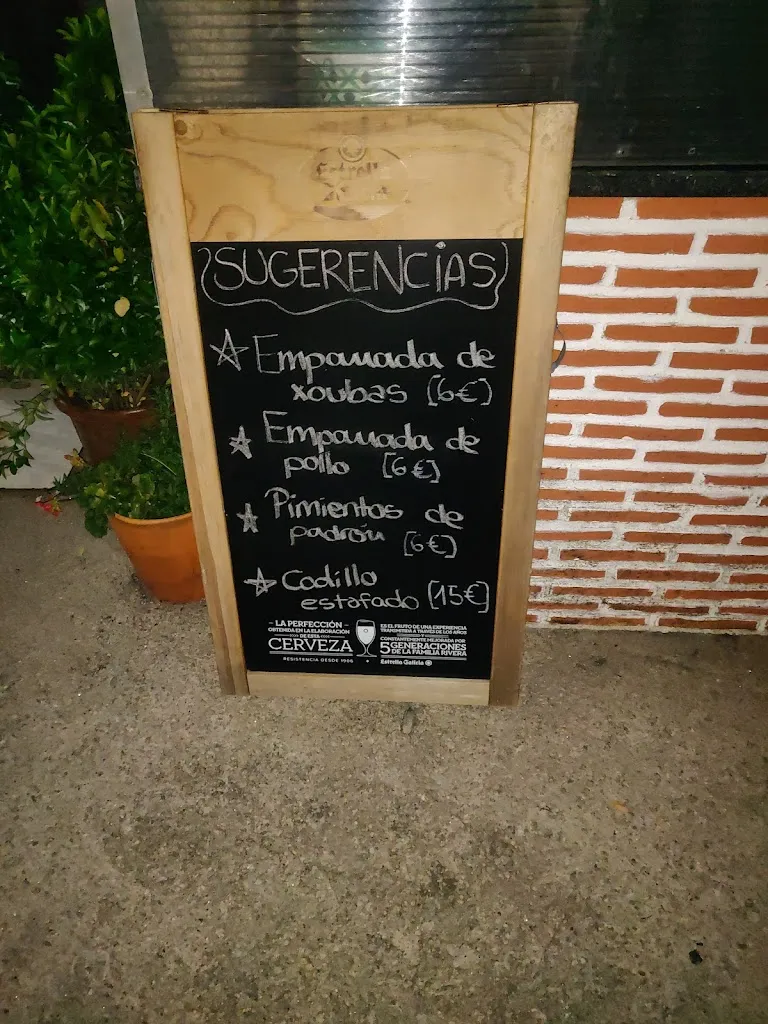 Estrella
SUGERENCIAS
Empanada de
xoubas [6€]
Empanada de
pollo [6€]
Pimientos de
padrón [6€]
Codillo
estofado [15€]
- LA PERFECCIÓN -
OBTENIDA EN LA ELABORACIÓN
DE ESTA
CERVEZA
RESISTENCIA DESDE 1906
ES EL FRUTO DE UNA EXPERIENCIA
TRANSMITIDA A TRAVÉS DE LOS AÑOS
Y
CONSTANTEMENTE MEJORADA POR
5 GENERACIONES
DE LA FAMILIA RIVERA
Estrella Galicia